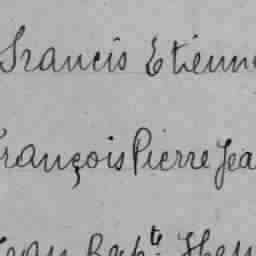 Francis Etienne
François Pierre Jea
Jean Bapte Hen